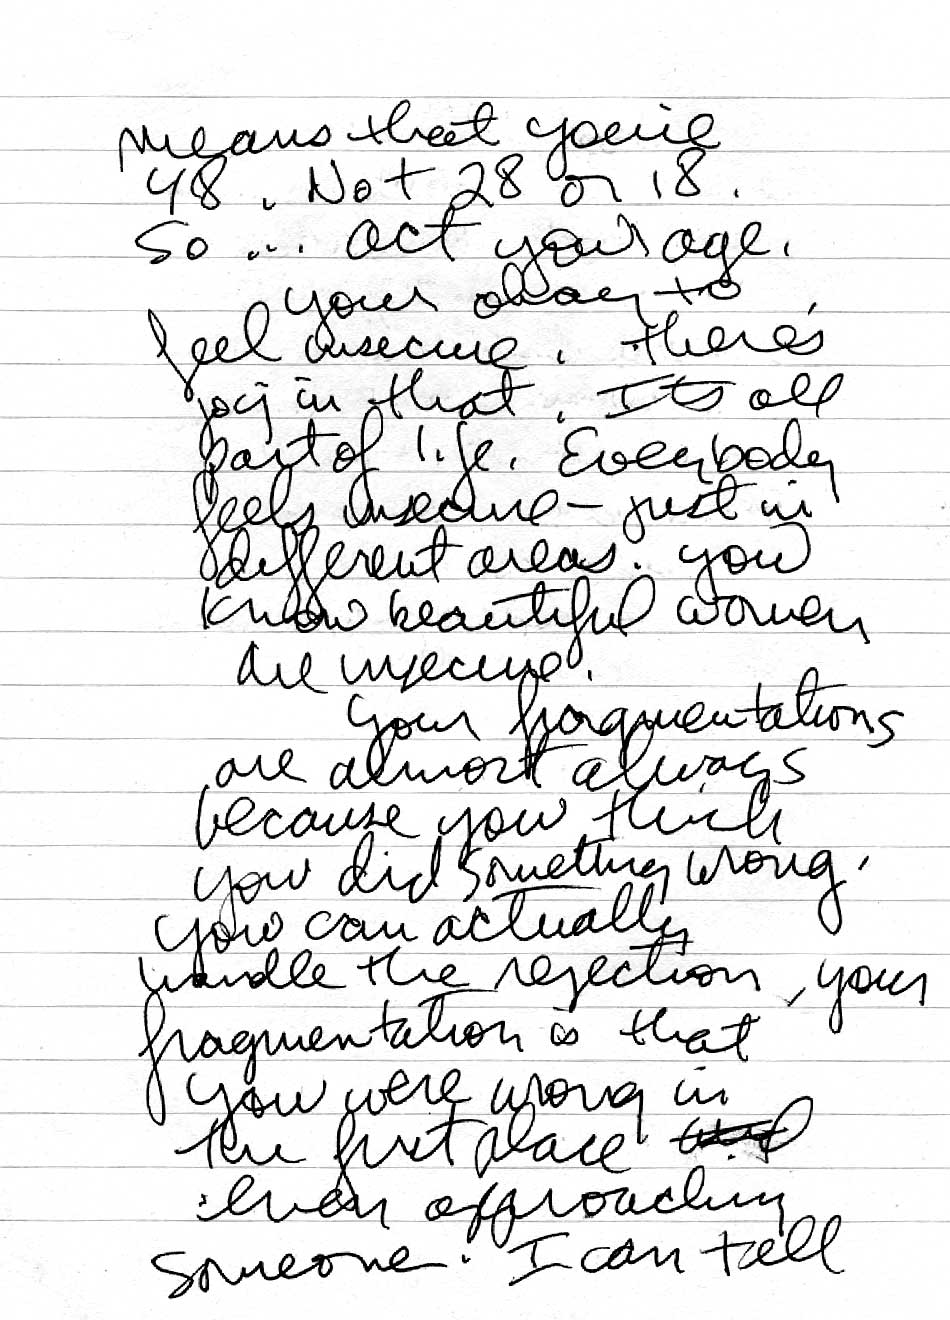 means that you're
48. Not 28 or 18.
So... act your age.
your okay to
feel insecure. there's
joy in that. Its all
part of life. Everybody
feels insecure - just in
different areas. you
know beautiful women
are insecure.
Your fragmentations
are almost always
because you think
you did something wrong.
you can actually
handle the rejection, your
fragmentation is that
you were wrong in
the first place
even approaching
someone. I can tell